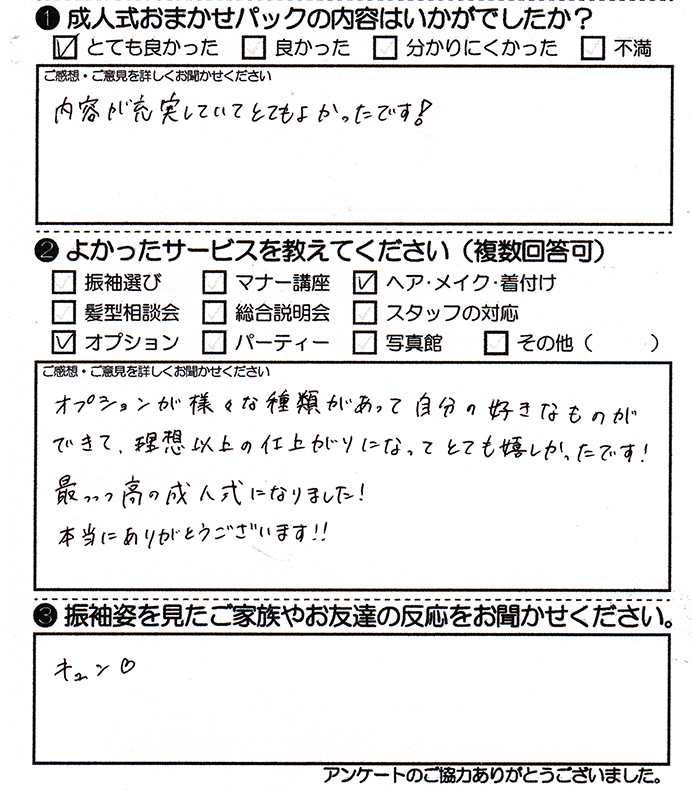 ❶ 成人式おまかせパックの内容はいかがでしたか？
☑ とても良かった □ 良かった □ 分かりにくかった □ 不満
ご感想・ご意見を詳しくお聞かせください
内容が充実していてとてもよかったです!
❷ よかったサービスを教えてください（複数回答可）
□ 振袖選び □ マナー講座 ☑ ヘア・メイク・着付け
□ 髪型相談会 □ 総合説明会 □ スタッフの対応
☑ オプション □ パーティー □ 写真館 □ その他（　　）
ご感想・ご意見を詳しくお聞かせください
オプションが様々な種類があって自分の好きなものが
できて、理想以上の仕上がりになってとても嬉しかったです!
最っっっ高の成人式になりました!
本当にありがとうございます!!
❸ 振袖姿を見たご家族やお友達の反応をお聞かせください。
キュン♡
アンケートのご協力ありがとうございました。